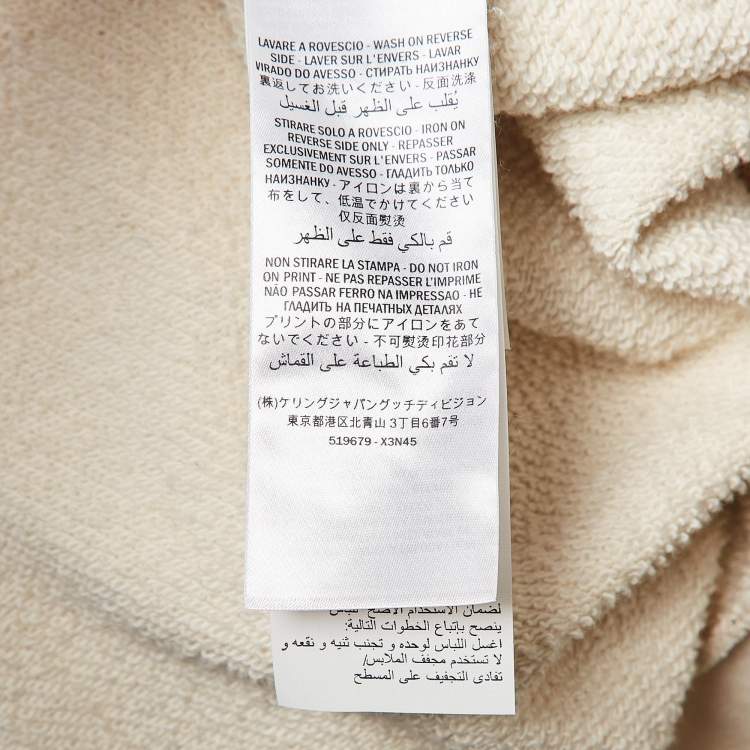 LAVARE A ROVESCIO - WASH ON REVERSE
SIDE - LAVER SUR L'ENVERS - LAVAR
VIRADO DO AVESSO - СТИРАТЬ НАИЗНАНКУ
裏返してお洗いください - 反面洗涤
يُقلب على الظهر قبل الغسيل
STIRARE SOLO A ROVESCIO - IRON ON
REVERSE SIDE ONLY - REPASSER
EXCLUSIVEMENT SUR L'ENVERS - PASSAR
SOMENTE DO AVESSO - ГЛАДИТЬ ТОЛЬКО
НАИЗНАНКУ - アイロンは裏から当て
布をして、低温でかけてください
仅反面熨烫
قم بالكي فقط على الظهر
NON STIRARE LA STAMPA - DO NOT IRON
ON PRINT - NE PAS REPASSER L'IMPRIME
NÃO PASSAR FERRO NA IMPRESSAO - НЕ
ГЛАДИТЬ НА ПЕЧАТНЫХ ДЕТАЛЯХ
プリントの部分にアイロンをあて
ないでください - 不可熨烫印花部分
لا تقم بكي الطباعة على القماش
(株)ケリングジャパングッチディビジョン
東京都港区北青山3丁目6番7号
519679 - X3N45
لضمان الاستخدام الأصح للباس
ينصح بإتباع الخطوات التالية:
اغسل اللباس لوحده و تجنب ثنيه و نقعه و
لا تستخدم مجفف الملابس/
تفادى التجفيف على المسطح